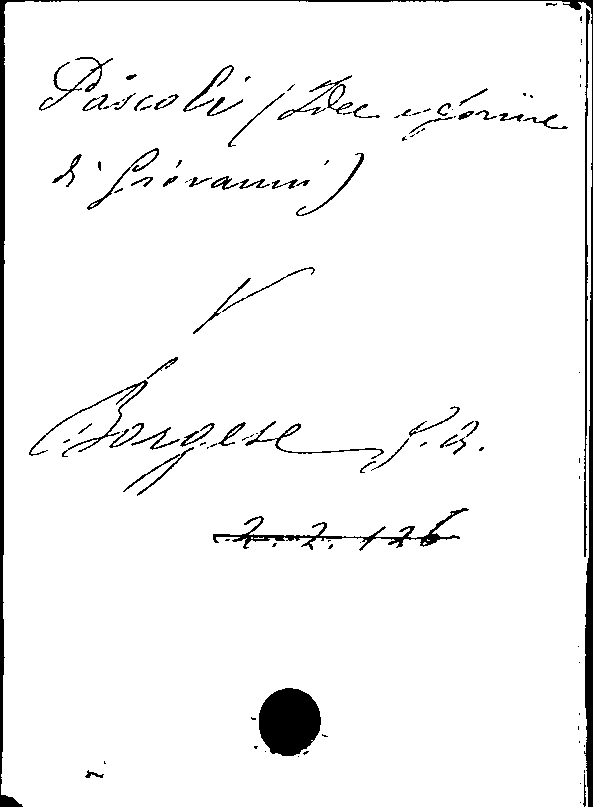 Pascoli (Idee e forme
di Giovanni)
V
Borgese G. A.
2. 2. 126